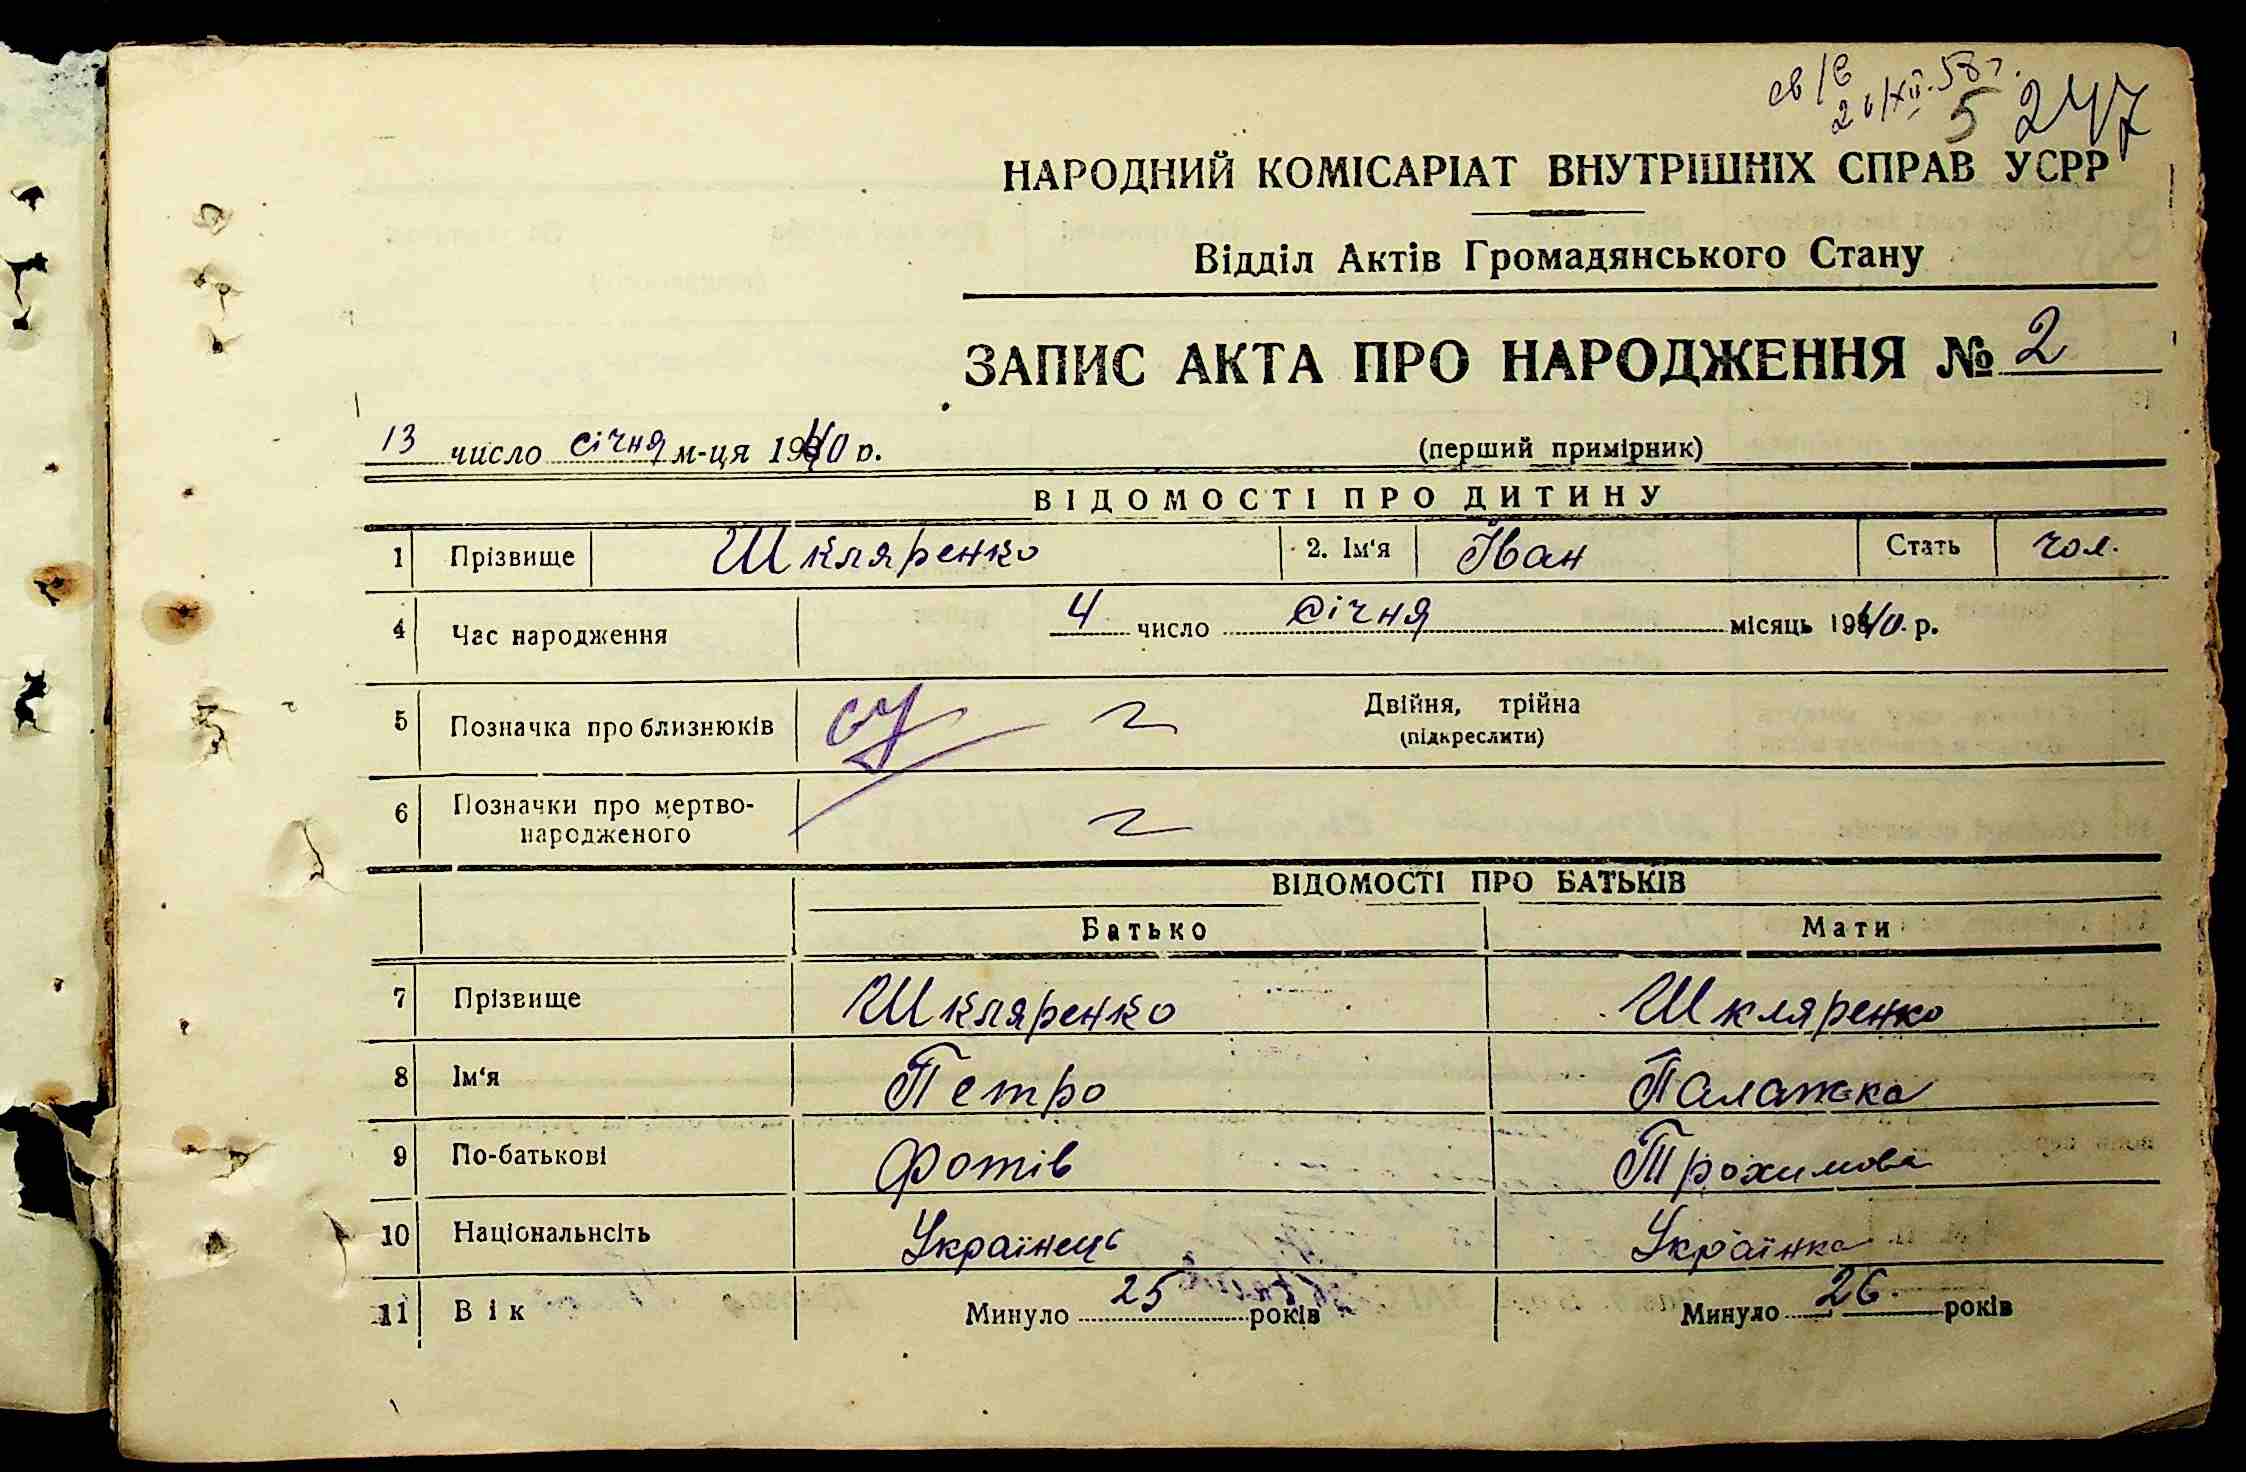 св/в
26/XII.58 г.
5 247
НАРОДНИЙ КОМІСАРІАТ ВНУТРІШНІХ СПРАВ УСРР
Відділ Актів Громадянського Стану
ЗАПИС АКТА ПРО НАРОДЖЕННЯ № 2
13 число січня м-ця 1940 р.
(перший примірник)
ВІДОМОСТІ ПРО ДИТИНУ
1 Прізвище Шкляренко 2. Ім'я Іван Стать чол.
4 Час народження 4 число січня місяць 1940 р.
5 Позначка про близнюків Двійня, трійна
(підкреслити)
6 Позначки про мертво-
народженого
ВІДОМОСТІ ПРО БАТЬКІВ
Батько Мати
7 Прізвище Шкляренко Шкляренко
8 Ім'я Петро Палажка
9 По-батькові Фотів Трохимова
10 Національнсіть Українець Українка
11 Вік Минуло 25 років Минуло 26 років